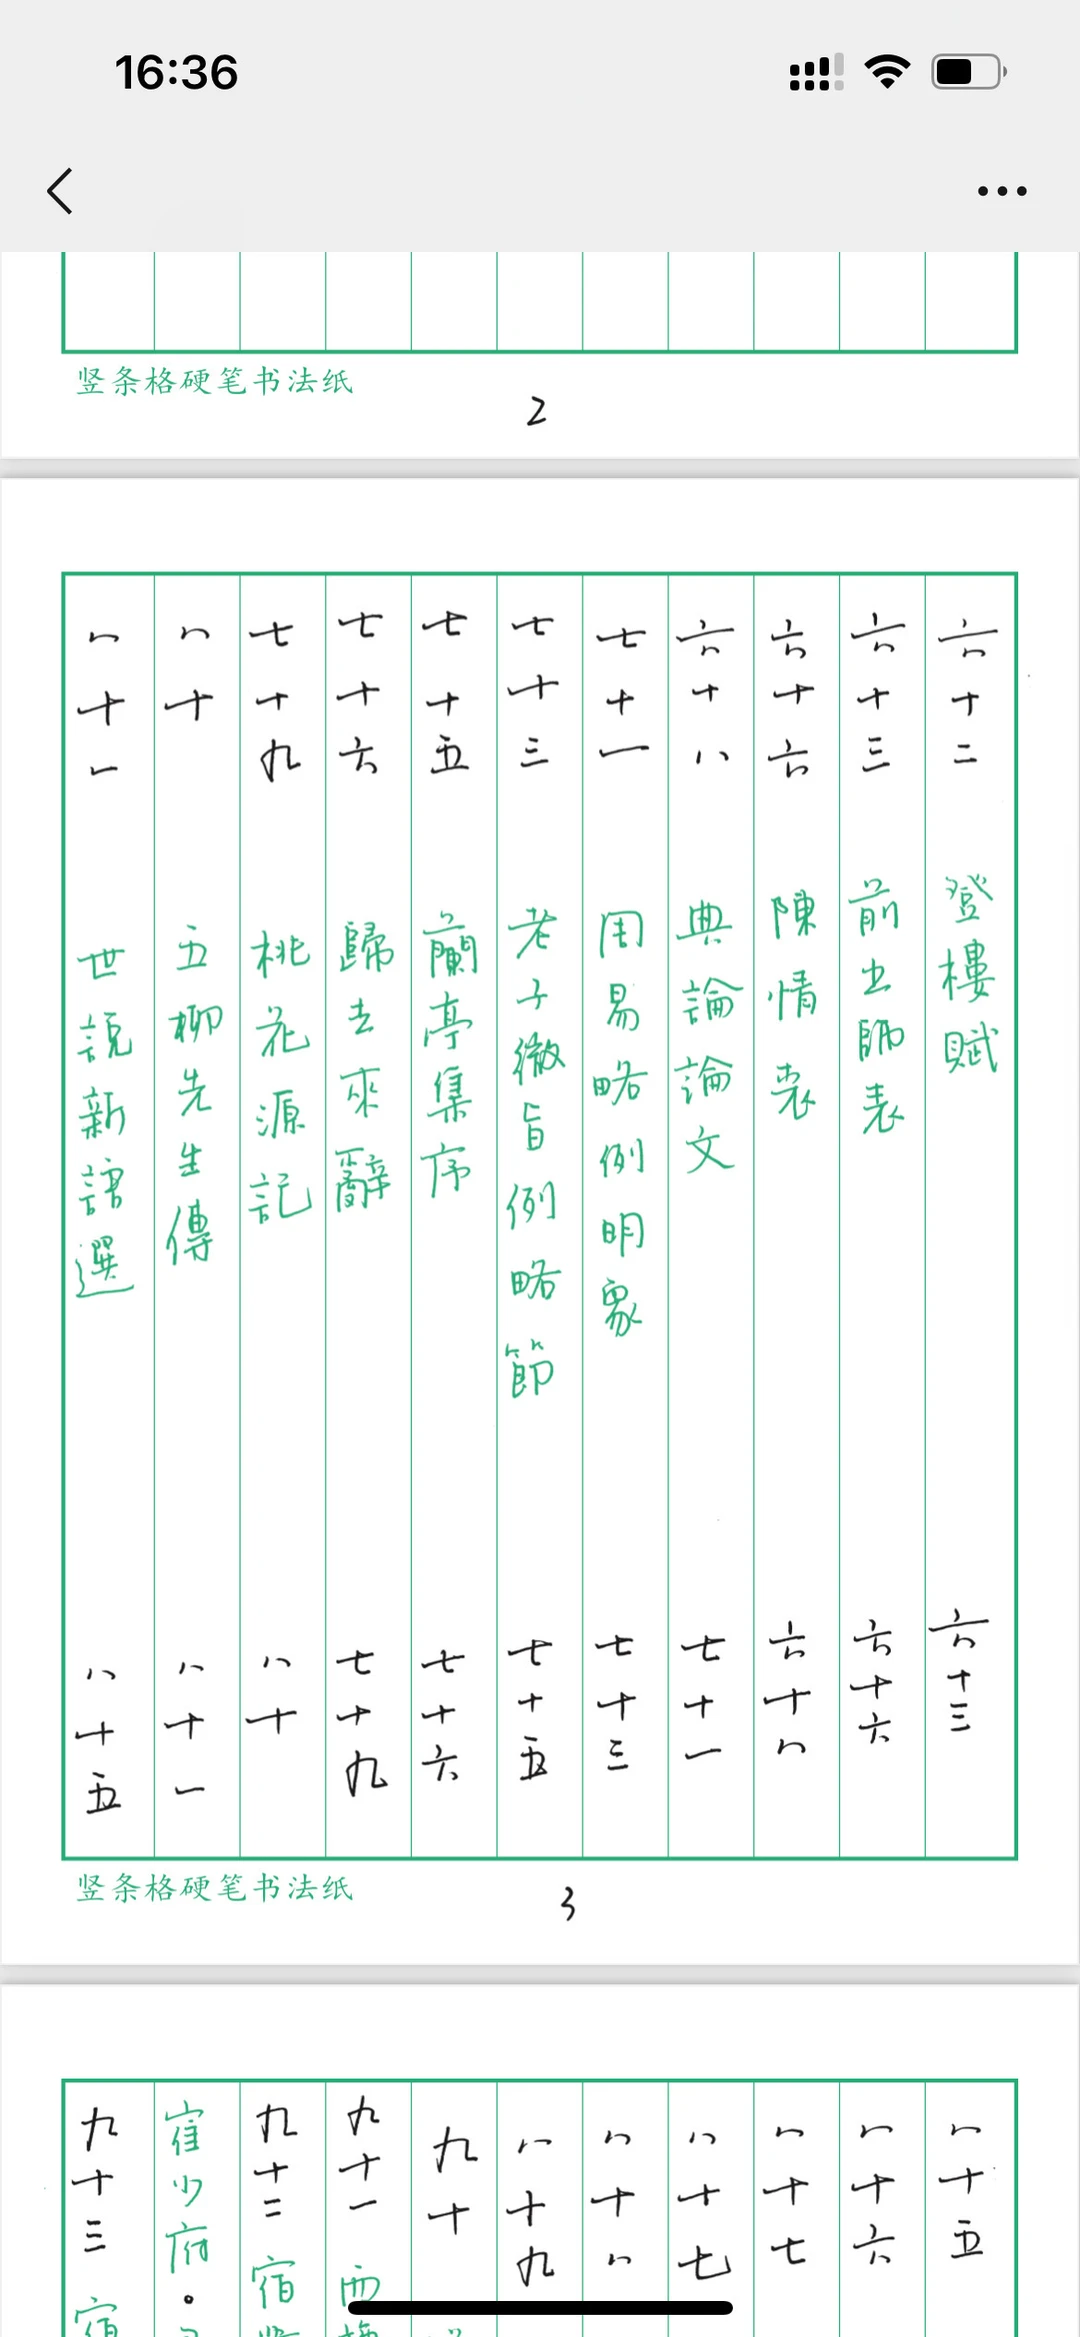 16:36
竖条格硬笔书法纸
2
六十二 登樓賦 六十三
六十三 前出師表 六十六
六十六 陳情表 六十八
六十八 典論論文 七十一
七十一 周易略例明象 七十三
七十三 老子微旨例略節 七十五
七十五 蘭亭集序 七十六
七十六 歸去來辭 七十九
七十九 桃花源記 八十
八十 五柳先生傳 八十一
八十一 世說新語選 八十五
竖条格硬笔书法纸
3
八十五
八十六
八十七
八十七
八十八
八十九
九十
九十一 西
九十三 宿
崔少府。
九十三 宿